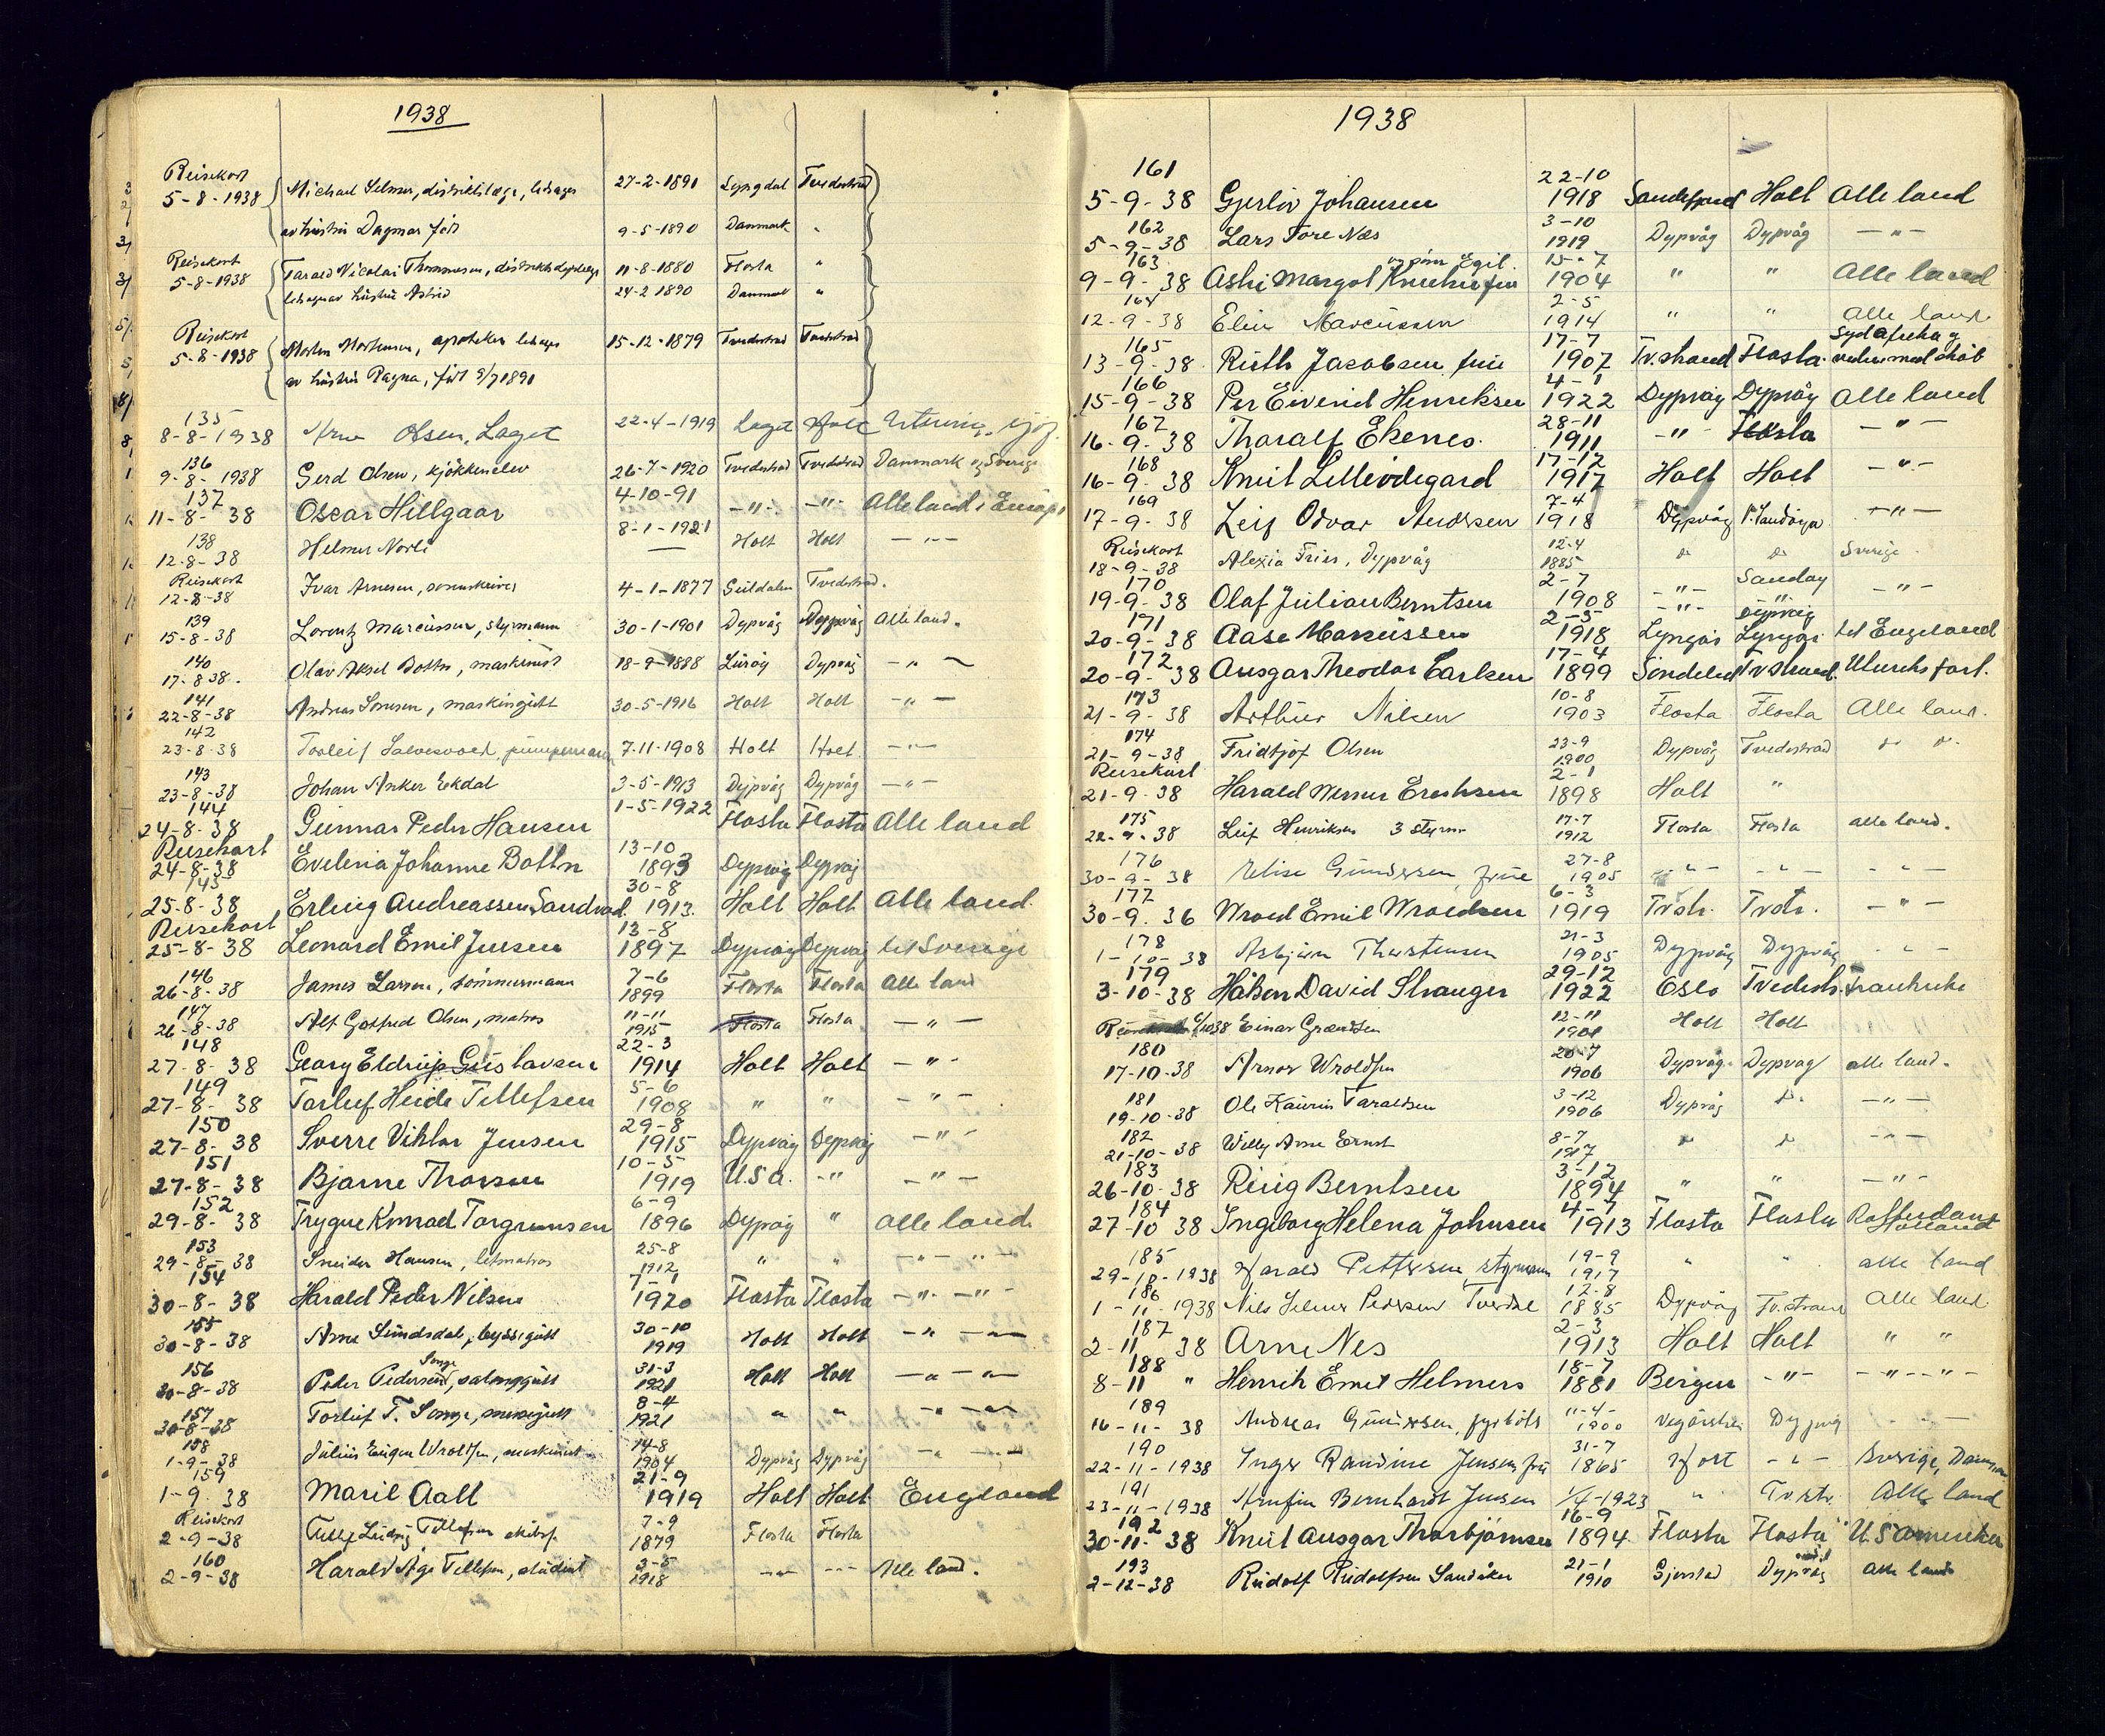 1938
Reisekort
5-8-1938 Michael Selmer, distriktslæge, ledsages 27-2-1891 Lyngdal Tvedestrand
av hustru Dagmar født 9-5-1890 Danmark "
Reisekort
5-8-1938 Tarald Nicolai Thommesen, 11-8-1880 Flosta "
ledsages av hustru Astrid 24-2 1890 Danmark "
Reisekort
5-8-1938 Morten Mortensen, apoteker ledsages 15-12-1879 Tvedestrand Tvedestrand
av hustru Ragna, født 9/7 1891
135
8-8-1938 Arne Olsen, Laget 22-4-1919 Laget Holt
136
9-8-1938 Gerd Olsen, kjøkkenelev 26-7-1920 Tvedestrand Tvedestrand Danmark og Sverige
137
11-8-38 Oscar Hillgaar 4-10-91 -"- -"- Alle land i Europa
138
12-8-38 Helmer Norli 8-1-1921 Holt Holt -"-
Reisekort
12-8-38 Ivar Arnesen, 4-1-1877 Tvedestrand.
139
15-8-38 Lorentz Marcussen, styrmann 30-1-1901 Dypvåg Dypvåg Alle land.
140
17-8-38. Olav Aksel Botten, maskinist 18-9-1888 Lurøy Dypvåg -"-
141
22-8-38 Andreas Sørensen, maskingutt 30-5-1916 Holt Holt -"-
142
23-8-38 Torleif Salvesvold, pumpemann 7-11-1908 Holt Holt -"-
143
23-8-38 Johan Anker Ekdal 3-5-1913 Dypvåg Dypvåg -"-
144
24-8-38 Gunnar Peder Hansen 1-5-1922 Flosta Flosta Alle land
Reisekort 13-10
24-8-38 Evelena Johanne Bottn 1893 Dypvåg Dypvåg
145 30-8
25-8-38 Erling Andreassen Sandvad 1913. Holt Holt Alle land
Reisekort 13-8
25-8-38 Leonard Emil Jensen 1897 Dypvåg Dypvåg til Sverige
146 7-6
26-8-38 James Larsen, tømmermann 1899 Flosta Flosta Alle land
147 11-11
26-8-38 Alf Gotfred Olsen, matros 1915 Flosta Flosta -"-
148 22-3
27-8-38 Georg Eldrup Gustavsen 1914 Holt Holt -"-
149 5-6
27-8-38 Torleif Heide Tellefsen 1908 " " -"-
150 29-8
27-8-38 Sverre Viktor Jensen 1915 Dypvåg Dypvåg -"-
151 10-5
27-8-38 Bjarne Thorsen 1919 U.S.a. -"- -"-
152 6-9
29-8-38 Trygve Konrad Torgrimsen 1896 Dypvåg " alle land
153 25-8
29-8-38 Sneider Hansen, letmatros 1912 " " -"- -"-
154 7-1
30-8-38 Harald Peder Nilsen 1920 Flosta Flosta -"- -"-
155 30-10
30-8-38 Arne Sundsdal, byssegutt 1919 Holt Holt -"-
156 Songe 31-3
30-8-38 Peder Pedersen, salonggutt 1921 Holt Holt -"-
157 8-4
30-8-38 Torleif T. Songe, messegutt 1921 " " -"-
158 14-8
1-9-38 Julius Eugen Wroldsen, maskinist 1904 Dypvåg Dypvåg -"-
159 21-9
1-9-38 Maril Aall 1919 Holt Holt England
Reisekort 7-9
2-9-38 Tellef Ludvig Tellefsen 1879 Flosta Flosta
160 3-5
2-9-38 Harald Åge Tellefsen, student 1918 -"- -"- Alle land.
1938
161 22-10
5-9-38 Gjerløv Johansen 1918 Sandefjord Holt Alle land
162 3-10
5-9-38 Lars Tore Næs 1919 Dypvåg Dypvåg -"-
163 Egil. 15-7
9-9-38 Margot 1904 " " Alle land
164 2-5
12-9-38 Elin Marcussen 1914 " " Alle land
165 17-7 Sydafrika og
13-9-38 Ruth Jacobsen frue 1907 Tv.strand Flosta
166 4-1
15-9-38 Per Eivind Henriksen 1922 Dypvåg Dypvåg Alle land
167 28-11
16-9-38 Tharalf Ekenes. 1911 -"- Flosta -"-
168 17-12
16-9-38 Knut Lilleødegard 1917 Holt Holt -"-
169 7-4
17-9-38 Leif Odvar Andersen 1918 Dypvåg -"-
Reisekort 12-4
18-9-38 Alexia Friis, Dypvåg 1885 do do Sverige.
170 2-7 Sandøy
19-9-38 Olaf Julian Berntsen 1908 -"- -"-
171 2-5 Dypvåg
20-9-38 Aase Marcussen 1918 Lyngør Lyngør til England
172 17-4
20-9-38 Ansgar Theodor Carlsen 1899 Søndeled Tv.strand. Utenriksfart.
173 10-8
21-9-38 Arthur Nilsen 1903 Flosta Flosta Alle land.
174 23-9
21-9-38 Fridtjof Olsen 1900 Dypvåg Tvedestrand do do
Reisekort 2-1
21-9-38 Harald Werner Erichsen 1898 Holt "
175 17-7
22-9-38 Leif Henriksen 3 styrm. 1912 Flosta Flosta alle land.
176 27-8
30-9-38 Elise Gundersen frue 1905 -"- -"- -"-
177 6-3
30-9.36 Wrold Emil Wroldsen 1919 Tvstr. Tvstr. -"-
178 21-3
1-10-38 Asbjørn Thorstensen 1905 Dypvåg Dypvåg -"-
179 29-12
3-10-38 Håkon David Stranger 1922 Oslo Tvedestr. Frankrike
12-11
Reisekort 6/10 38 Einar Grændsen 1901 Holt Holt
180 20-7
17-10-38 Arnor Wroldsen 1906 Dypvåg Dypvåg alle land.
181 3-12
19-10-38 Ole Kaurin Taraldsen 1906 Dypvåg do -"-
182 8-7
21-10-38 Willy Arne Ernst 1917 do do -"-
183 3-12
26-10-38 Ring Berntsen 1894 " " -"-
184 4-7
27-10 38 Ingeborg Helena Johnsen 1913 Flosta Flosta Rotterdam Holland
185 19-9
29-10-1938 Harald Pettersen, styrmann 1917 " " alle land
186 12-8
1-11-1938 Nils Selmer Pedersen Tverdal 1885 Dypvåg Tv.strand Alle land.
187 2-3
2-11 38 Arne Nes 1913 Holt Holt " "
188 18-7
8-11 " Henrik Emil Helmers 1881 Bergen -"- -"- -"-
189 11-4-
16-11-38 Andreas Gundersen, fyrbøter 1900 Vegårshei Dypvåg -"-
190 31-7
22-11-1938 Inger Randine Jensen, frue 1865 Hort -"- Sverige, Danmark
191
23-11-1938 Arnfin Bernhardt Jensen 1/4-1923 " Tv.str. Alle land
192 16-9
30-11-38 Knut Ansgar Thorbjørnsen 1894 Flosta Flosta U.S Amerika
193 21-1
2-12-38 Rudolf Rudolfsen Sandåker 1910 Gjerstad Dypvåg alle land